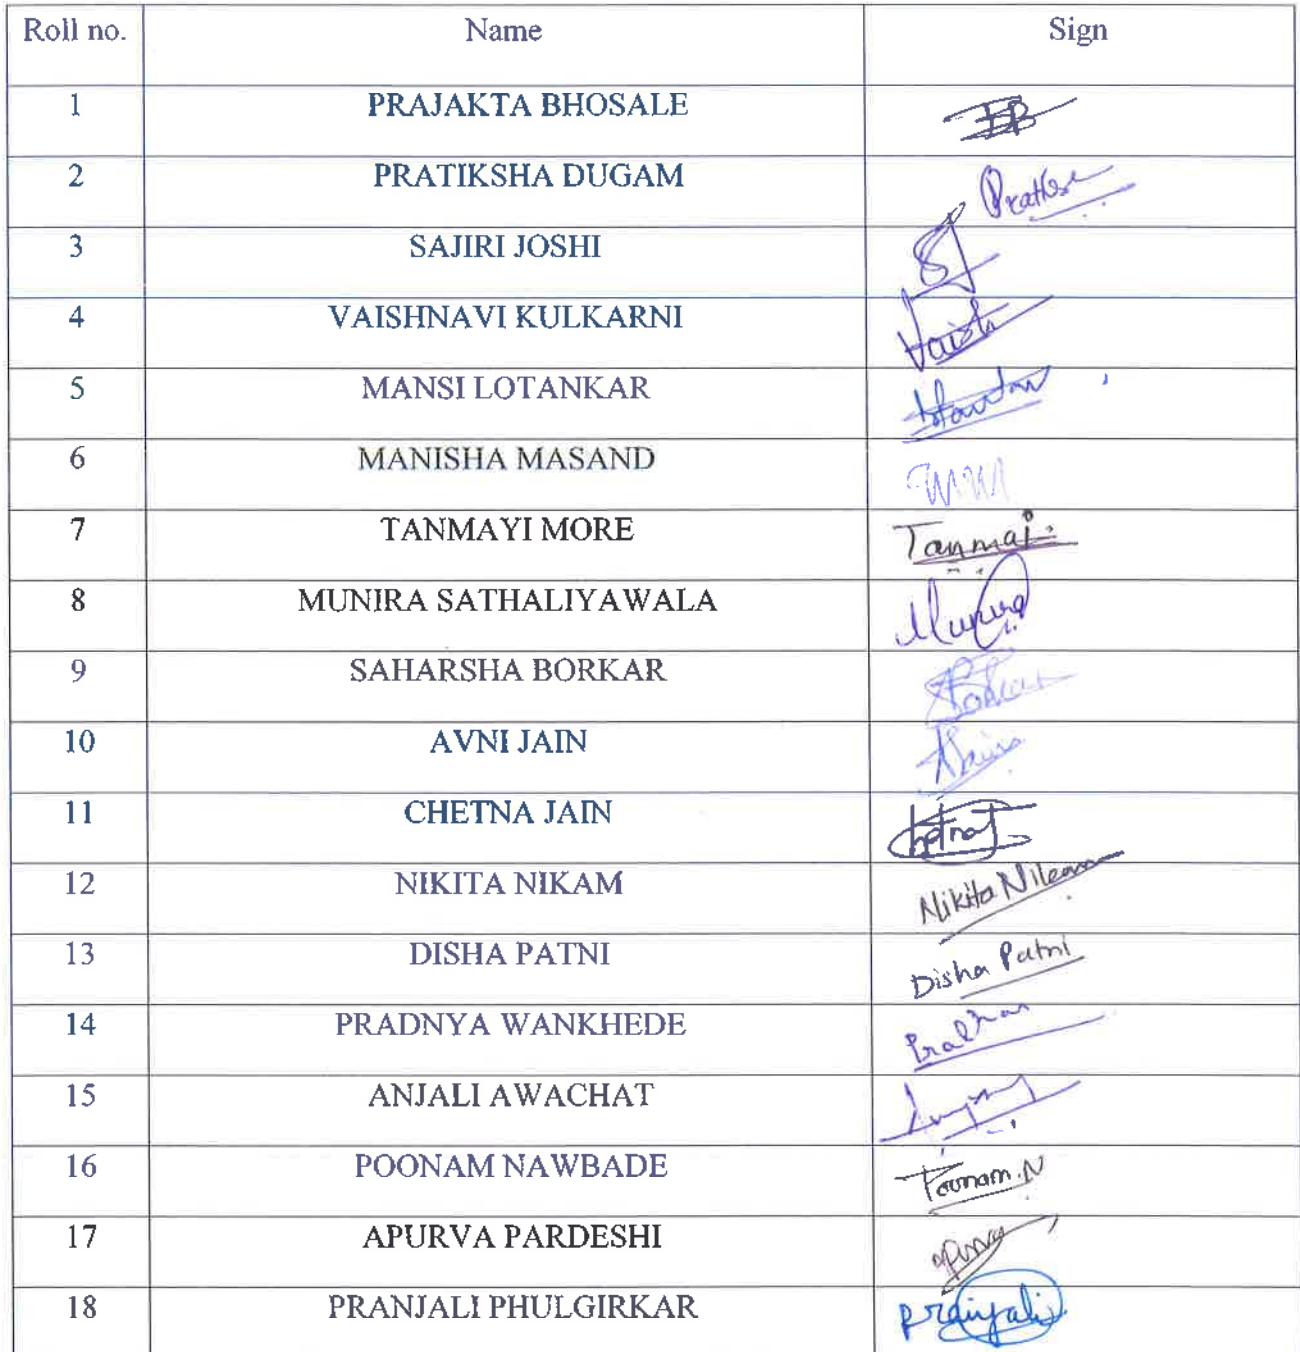 Roll no. Name Sign
1 PRAJAKTA BHOSALE
2 PRATIKSHA DUGAM
3 SAJIRI JOSHI SJ
4 VAISHNAVI KULKARNI Vaish
5 MANSI LOTANKAR
6 MANISHA MASAND
7 TANMAYI MORE Tanmai
8 MUNIRA SATHALIYAWALA Munira
9 SAHARSHA BORKAR
10 AVNI JAIN
11 CHETNA JAIN
12 NIKITA NIKAM Nikita Nikam
13 DISHA PATNI Disha Patni
14 PRADNYA WANKHEDE
15 ANJALI AWACHAT
16 POONAM NAWBADE Poonam.N
17 APURVA PARDESHI
18 PRANJALI PHULGIRKAR Pranjali